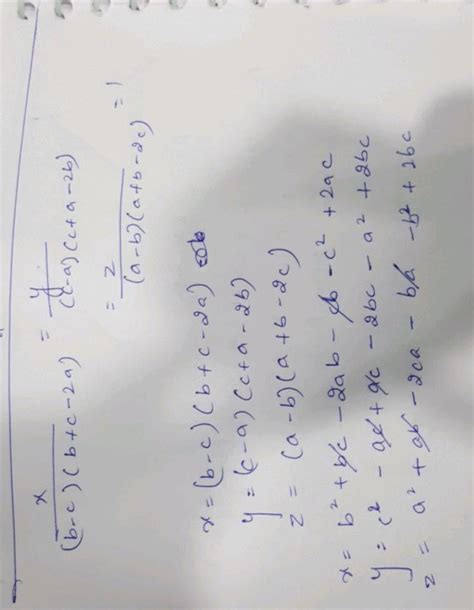 x/(b-c)(b+c-2a) = y/(c-a)(c+a-2b)
= z/(a-b)(a+b-2c) = 1
x = (b-c)(b+c-2a)
y = (c-a)(c+a-2b)
z = (a-b)(a+b-2c)
x = b² + bc - 2ab - cb - c² + 2ac
y = c² - ac + ac - 2bc - a² + 2bc
z = a² + ab - 2ca - ba - b² + 2bc